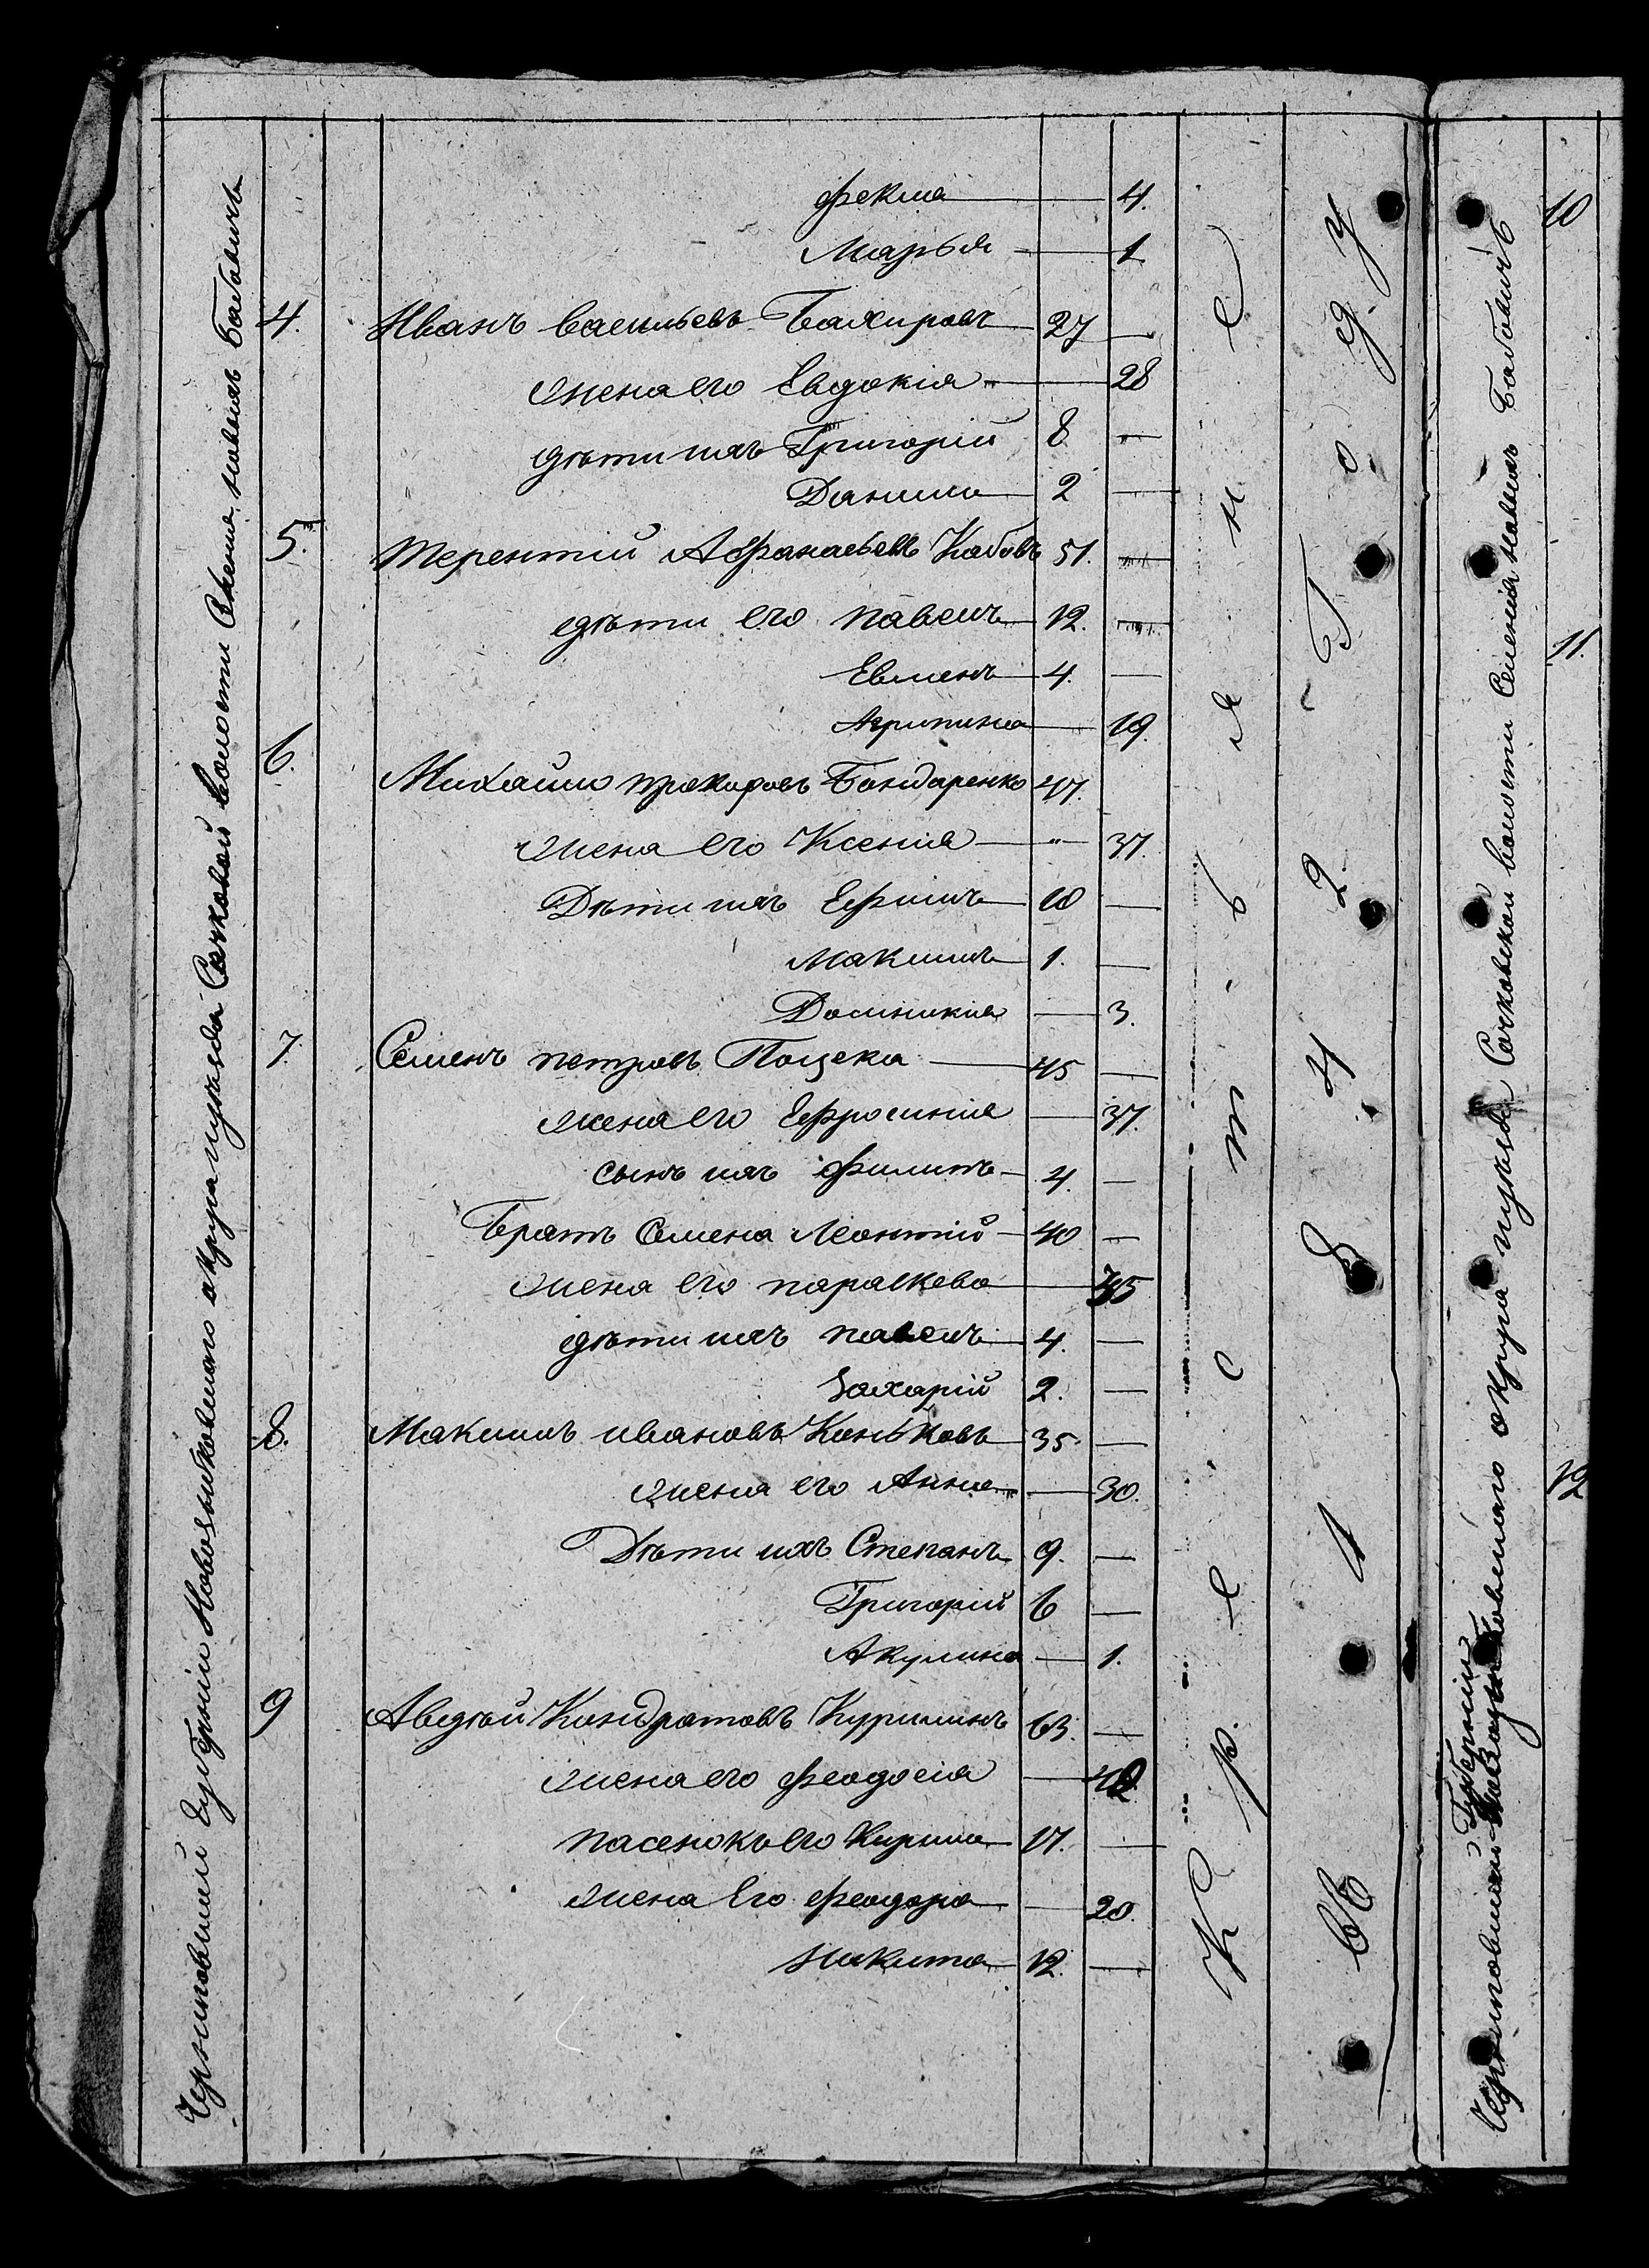 Черниговской Губерніи Новозыбковскаго округа и уѣзда Сачковской волости Селенія Новыхъ Бабовичъ
Фекла — 4.
Марья — 1
4. Иванъ Васильевъ Бахировъ 27 —
жена его Евдокія — 28
дѣти ихъ Григорій 8 —
Данила 2 —
5. Терентій Афанасьевъ Кабовъ 51. —
дѣти его Павелъ 12. —
Евменъ 4. —
Агрипина — 19.
6. Михайло Прокоровъ Бондаренко 47.
жена его Ксенія — 37.
Дѣти ихъ Ефимъ 10 —
Максимъ 1. —
Домникія — 3.
7. Семенъ Петровъ Поцека 45 —
жена его Ефросинія — 37.
сынъ ихъ Филипъ 4. —
Братъ Семена Леонтій 40 —
жена его Параскева — 35
дѣти ихъ Павелъ 4. —
Захарій 2. —
8. Максимъ Ивановъ Коньковъ 35. —
жена его Анна — 30.
Дѣти ихъ Степанъ 9. —
Григорій 6 —
Акулина — 1.
9 Авдѣй Кондратовъ Курилинъ 63. —
жена его Феодосія —
пасенокъ его Кирила 17. —
жена Его Феодора — 20.
Никита 12. —
К р е с т ь я н е
Въ 1 8 4 2 Году
Черниговской Губерніи Новозыбковскаго округа и уѣзда Сачковской волости Селенія Новыхъ Бабовичъ
10
11.
12